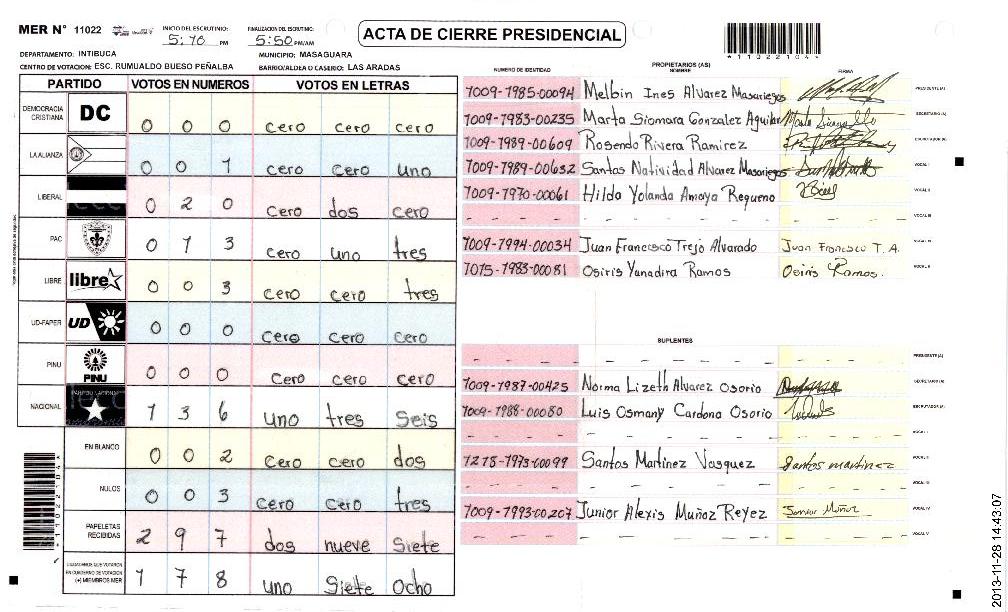 MER N° 11022
INICIO DEL ESCRUTINIO: 5:10 PM
FINALIZACION DEL ESCRUTINIO: 5:50 PM/AM
ACTA DE CIERRE PRESIDENCIAL
*1102210 4*
DEPARTAMENTO: INTIBUCA
MUNICIPIO: MASAGUARA
CENTRO DE VOTACION: ESC. RUMUALDO BUESO PEÑALBA
BARRIO/ALDEA O CASERIO: LAS ARADAS
PARTIDO VOTOS EN NUMEROS VOTOS EN LETRAS
DEMOCRACIA CRISTIANA DC 0 0 0 cero cero cero
LA ALIANZA 0 0 1 cero cero uno
LIBERAL 0 2 0 cero dos cero
PAC 0 1 3 cero uno tres
LIBRE libre 0 0 3 cero cero tres
UD-FAPER UD 0 0 0 cero cero cero
PINU PINU 0 0 0 cero cero cero
NACIONAL 1 3 6 uno tres seis
EN BLANCO 0 0 2 cero cero dos
NULOS 0 0 3 cero cero tres
PAPELETAS RECIBIDAS 2 9 7 dos nueve siete
CIUDADANOS QUE VOTARON EN CUADERNO DE VOTACION (+) MIEMBROS MER 1 7 8 uno siete ocho
PROPIETARIOS (AS)
NUMERO DE IDENTIDAD NOMBRE FIRMA
1009-1985-00094 Melbin Ines Alvarez Masariegos PRESIDENTE (A)
1009-1983-00235 Marta Siomara Gonzalez Aguilar SECRETARIO (A)
1009-1989-00609 Rosendo Rivera Ramirez ESCRUTADOR (A)
1009-1989-00682 Santos Natividad Alvarez Masariegos VOCAL I
1009-1970-00061 Hilda Yolanda Amaya Requeno VOCAL II
- - - - - - - - VOCAL III
1009-1994-00034 Juan Francisco Trejo Alvarado Juan Francisco T. A. VOCAL IV
1015-1983-00081 Osiris Yanadira Ramos Osiris Ramos. VOCAL V
SUPLENTES
- - - - - - - - PRESIDENTE (A)
1009-1987-00425 Norma Lizeth Alvarez Osorio SECRETARIO (A)
1009-1988-00080 Luis Osmany Cardona Osorio ESCRUTADOR (A)
- - - - - - - - VOCAL I
1218-1973-00099 Santos Martinez Vasquez Santos martinez VOCAL II
- - - - - - - - VOCAL III
1009-1993-00207 Junior Alexis Muñoz Reyez Junior Muñoz VOCAL IV
- - - - - - - - VOCAL V
2013-11-28 14:43:07